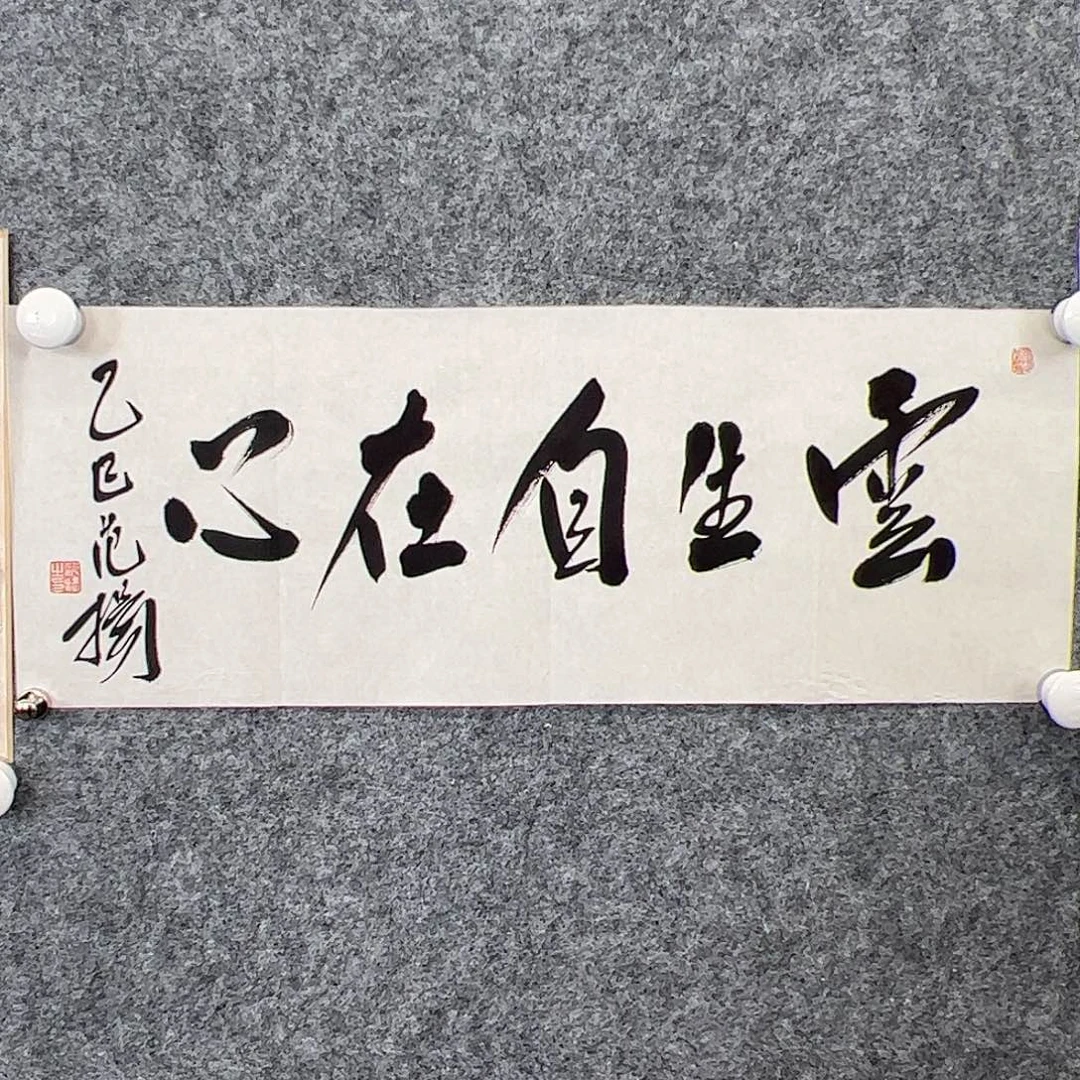 雲生自在心
乙巳范